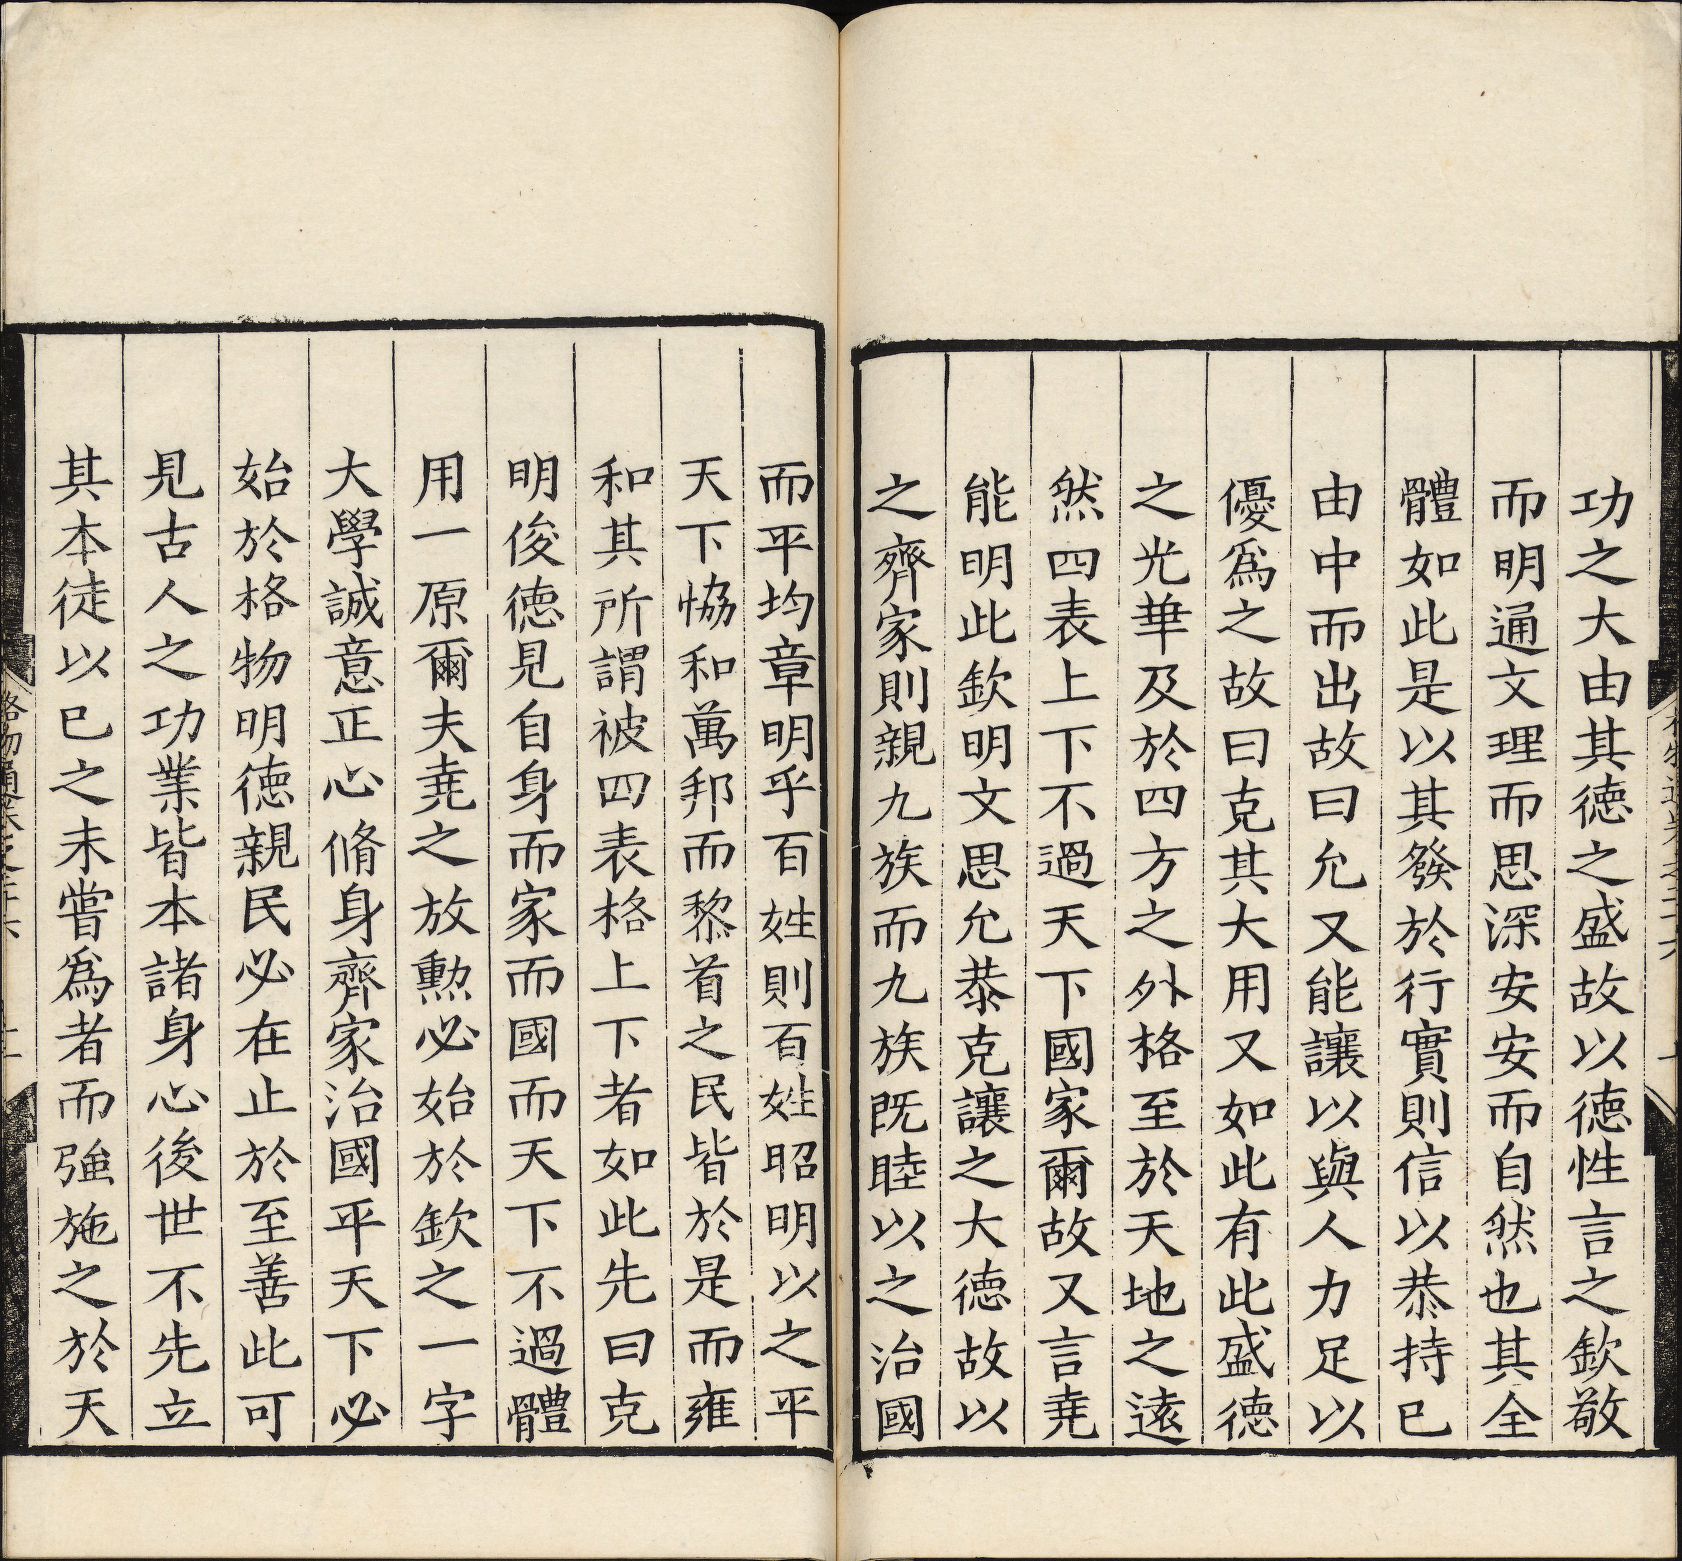 功之大由其徳之盛故以徳性言之欽敬
而明通文理而思深安安而自然也其全
體如此是以其發於行實則信以恭持已
由中而出故曰允又能讓以與人力足以
優爲之故曰克其大用又如此有此盛徳
之光華及於四方之外格至於天地之遠
然四表上下不過天下國家爾故又言堯
能明此欽明文思允恭克讓之大徳故以
之齊家則親九族而九族既睦以之治國
而平均章明乎百姓則百姓昭明以之平
天下恊和萬邦而黎首之民皆於是而雍
和其所謂被四表格上下者如此先曰克
明俊徳見自身而家而國而天下不過體
用一原爾夫堯之放勲必始於欽之一字
大學誠意正心脩身齊家治國平天下必
始於格物明徳親民必在止於至善此可
見古人之功業皆本諸身心後世不先立
其本徒以已之未嘗爲者而強施之於天